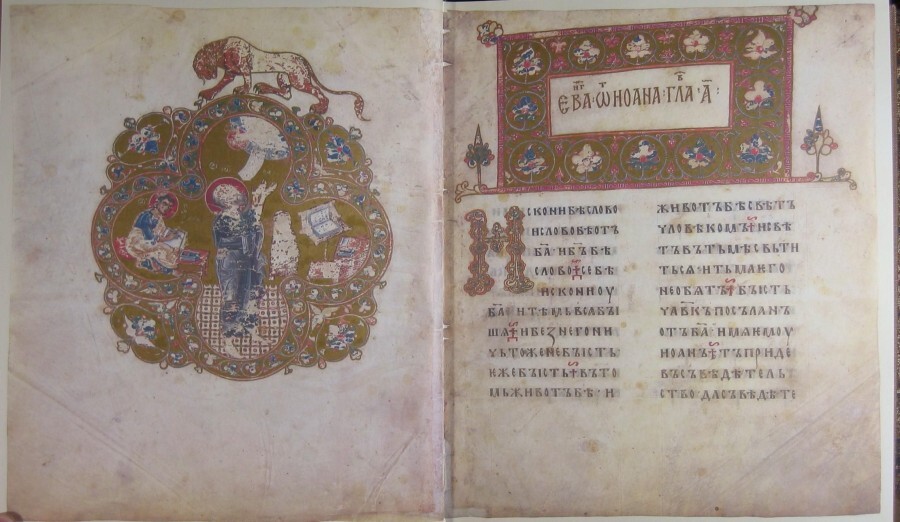 ЕВА҃Г Ѿ ИОАНА · ГЛА҃В · А҃ :
ИСКОНИБѢСЛОВО
ИСЛОВОБѢОТЪ
БА҃ИБЪ҃БѢ
СЛОВО ⁘ СЕБѢ
ИСКОНИОУ
БА҃ ИТѢМЬВЬСАБЫ
ША ⁘ ИБЕЗНЕГОНИ
ЧЬТОЖЕНЕБЫСТЬ
ѤЖЕБЫСТЬ ⁘ ВЪТО
МЬЖИВОТЪБѢ · И
ЖИВОТЪБѢСВѢТЪ
ЧЛОВѢКОМЪ ⁘ ИСВѢ
ТЪВЪТЬМѢСВЬТИ
ТЬСѦ · ИТЬМАѤГО
НЕОБѦТЪ ⁘ БЫСТЬ
ЧЛ҃ВКЪПОСЪЛАНЪ
ОТЪБА҃ ИМѦѤМОУ
ИОАНЪ ⁘ ТЪПРИДЕ
ВЪСЪВѢДѢТЕЛЬ
СТВО ДАСЪВѢДѢТЕ